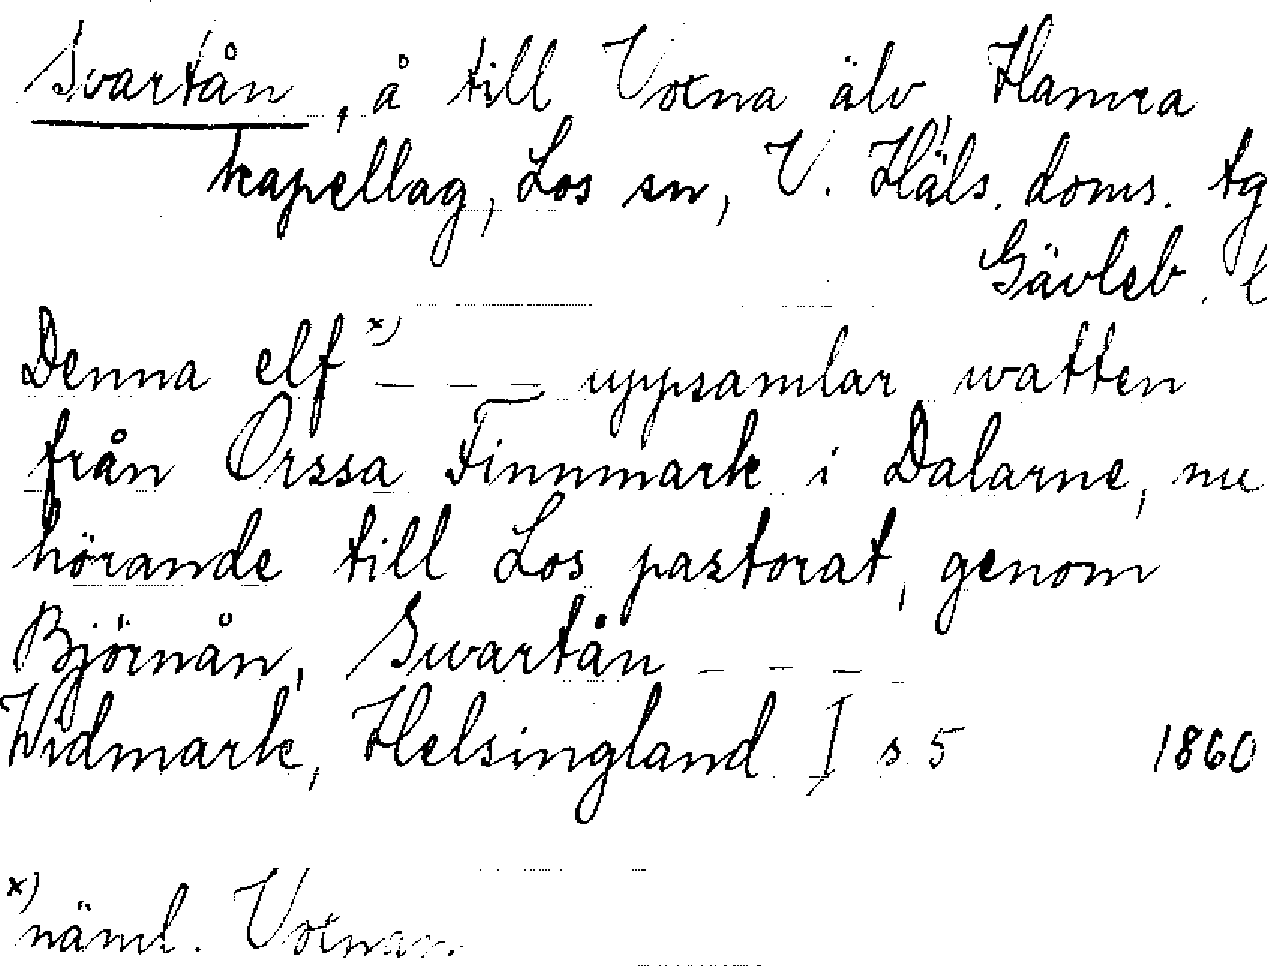 Svartån, å till Voxna älv, Hamra
kapellag, Los sn, V. Häls. doms. tg
Gävleb. l
Denna elf x) _ _ _ uppsamlar watten
från Orssa Finnmark i Dalarne, nu
hörande till Los pastorat, genom
Björnån, Swartån _ _ _
Widmark, Helsingland I s 5 1860
x) näml. Voxnan.